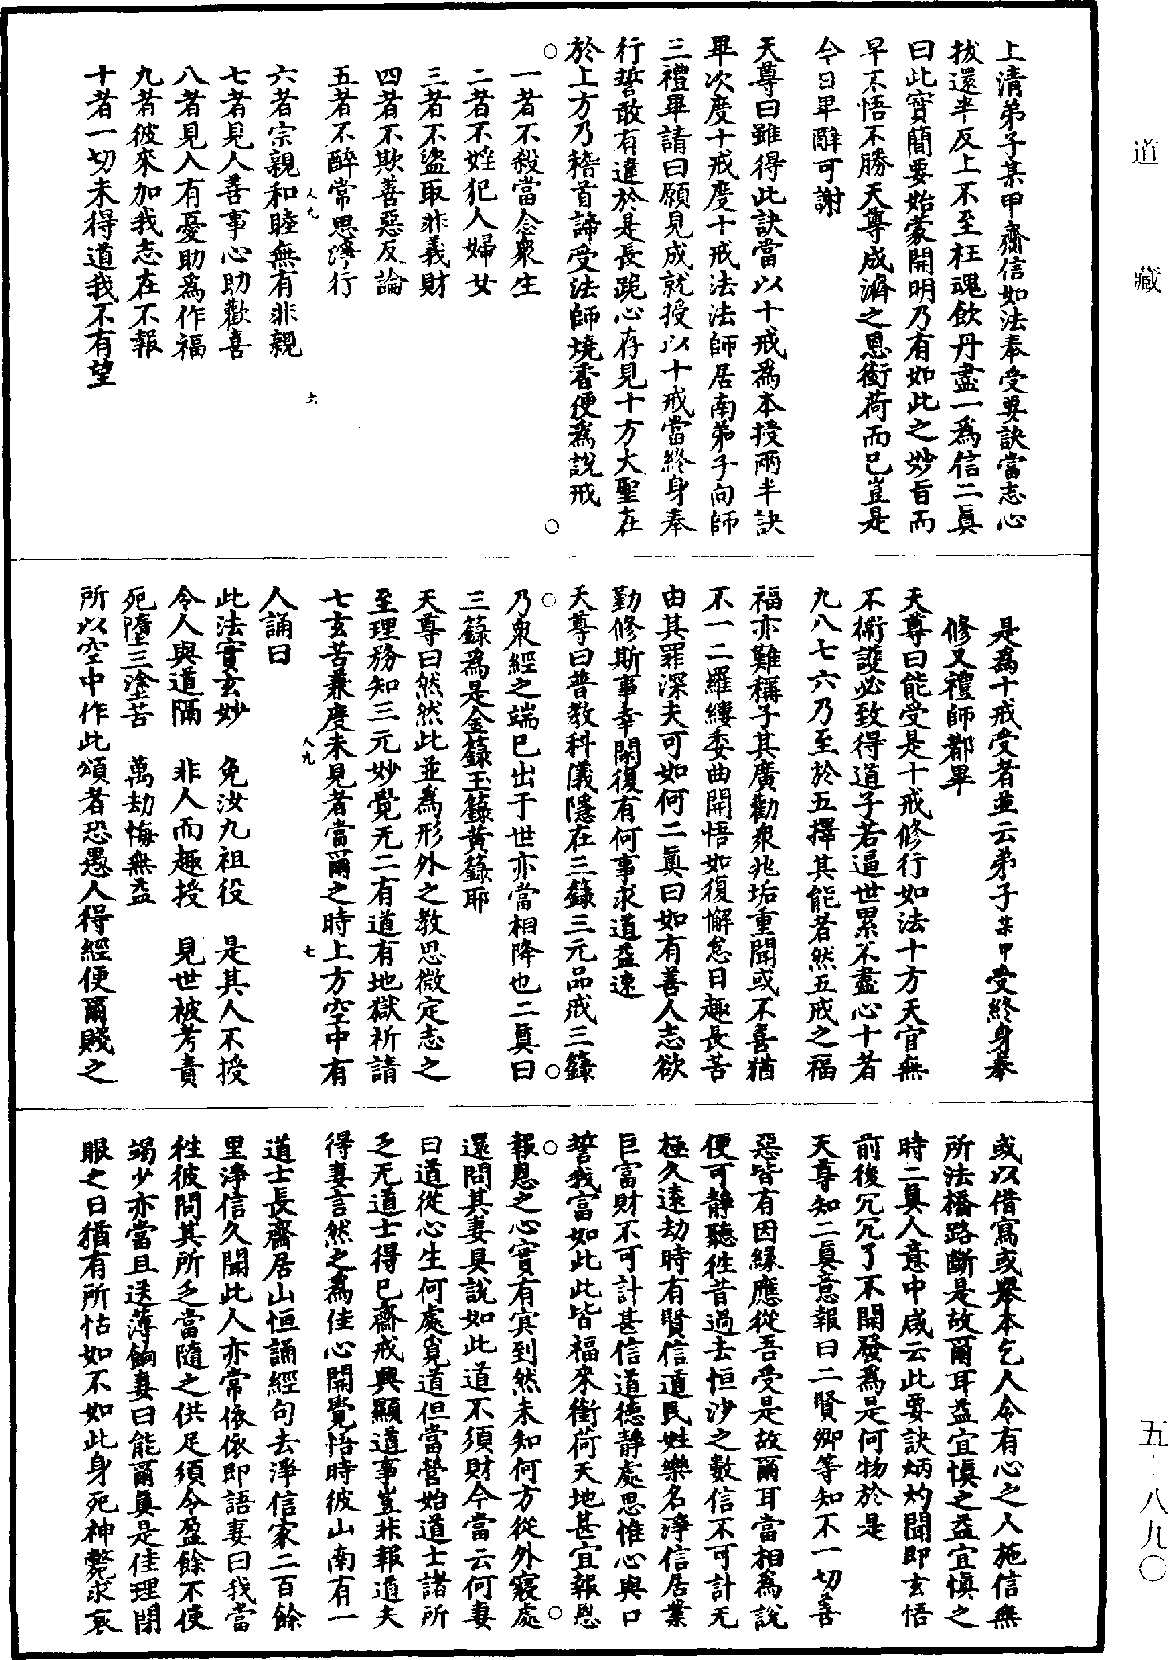 道藏
五·八九〇
上清弟子某甲齋信如法奉受要訣當志心
拔還半反上不至枉魂飲丹盡一為信二真
曰此實簡要始蒙開明乃有如此之妙旨而
早不悟不勝天尊成濟之恩銜荷而已豈是
今日卑辭可謝
天尊曰雖得此訣當以十戒為本授兩半訣
畢次度十戒度十戒法法師居南弟子向師
三禮畢請曰願見成就授以十戒當終身奉
行誓敢有違於是長跪心存見十方大聖在
於上方乃稽首諦受法師燒香便為說戒
一者不殺當念衆生
二者不婬犯人婦女
三者不盜取非義財
四者不欺善惡反論
五者不醉常思淨行
六者宗親和睦無有非親
七者見人善事心助歡喜
八者見人有憂助為作福
九者彼來加我志在不報
十者一切未得道我不有望
八九
六
是為十戒受者並云弟子某甲受終身奉
修又禮師都畢
天尊曰能受是十戒修行如法十方天官無
不衛護必致得道子若逼世累不盡心十者
九八七六乃至於五擇其能者然五戒之福
福亦難稱子其廣勸衆兆垢重聞或不喜猶
不一二羅縷委曲開悟如復懈怠日趣長苦
由其罪深夫可如何二真曰如有善人志欲
勤修斯事幸閑復有何事求道益速
天尊曰普教科儀隱在三籙三元品戒三籙
乃衆經之端已出于世亦當相降也二真曰
三籙為是金籙玉籙黃籙耶
天尊曰然然此並為形外之教思微定志之
至理務知三元妙覺无二有道有地獄祈請
七玄苦兼度未見者當爾之時上方空中有
人誦曰
此法實玄妙　免汝九祖役　是其人不授
令人與道隔　非人而趣授　見世被考責
死墮三塗苦　萬劫悔無益
所以空中作此頌者恐愚人得經便爾賤之
八九
七
或以借寫或舉本乞人令有心之人施信無
所法橋路斷是故爾耳益宜慎之益宜慎之
時二真人意中咸云此要訣炳灼聞即玄悟
前後冗冗了不開發為是何物於是
天尊知二真意報曰二賢卿等知不一切善
惡皆有因緣應從吾受是故爾耳當相為說
便可靜聽往昔過去恒沙之數信不可計无
極久遠劫時有賢信道民姓樂名淨信居業
巨富財不可計甚信道德靜處思惟心與口
誓我富如此此皆福來銜荷天地甚宜報恩
報恩之心實有冥到然未知何方從外寢處
還問其妻具說如此道不須財今當云何妻
曰道從心生何處覓道但當營始道士諸所
乏无道士得已齋戒興顯道事豈非報道夫
得妻言然之為佳心開覺悟時彼山南有一
道士長齋居山恒誦經句去淨信家二百餘
里淨信久聞此人亦常依依即語妻曰我當
往彼問其所乏當隨之供足須令盈餘不使
竭少亦當且送薄餉妻曰能爾真是佳理閉
眼之日猶有所怙如不如此身死神斃求哀